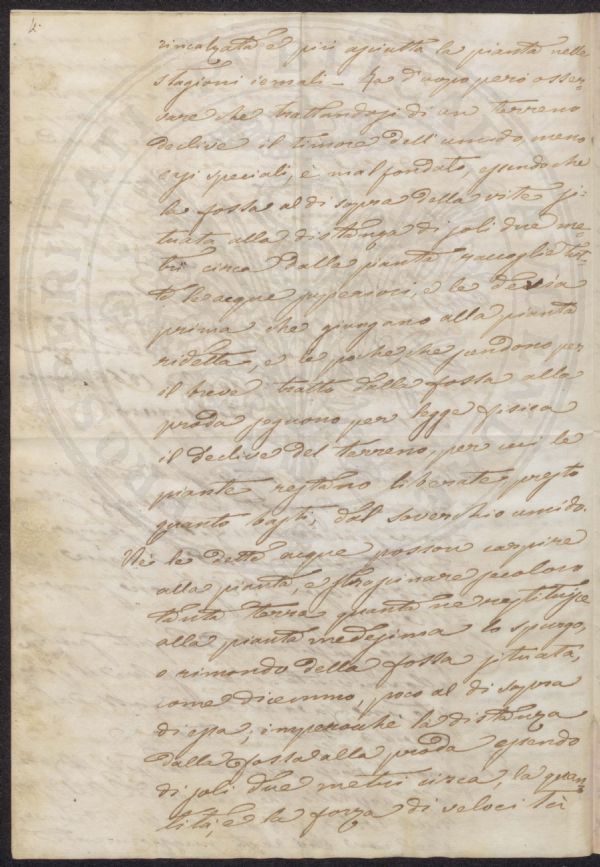 4.
rincalzata è più asciutta la pianta nelle
stagioni iemali – Ha d'uopo però osser-
vare che trattandosi di un terreno
declive il timore dell'umido, meno
casi speciali, è mal fondato, essendo che
la fossa al di sopra della vite si-
tuata alla distanza di soli due me-
tri circa dalla pianta raccoglie tut-
te le acque superiori, e le devia
prima che giungano alla pianta
ridetta, e le poche che scendono per
il breve tratto dalla fossa alla
proda seguono per legge fisica
il declive del terreno, per cui le
piante restano liberate presto
quanto basti, dal soverchio umido.
Nè le dette acque possono carpire
alla pianta, e strascinare secoloro
tanta terra quanta ne restituisce
alla pianta medesima lo spurgo,
o rimondo della fossa situata,
come dicemmo, poco al di sopra
di essa; imperocchè la distanza
dalla fossa alla proda essendo
di soli due metri circa, la quan-
tità, e la forza di velocità
PROSPERITATI